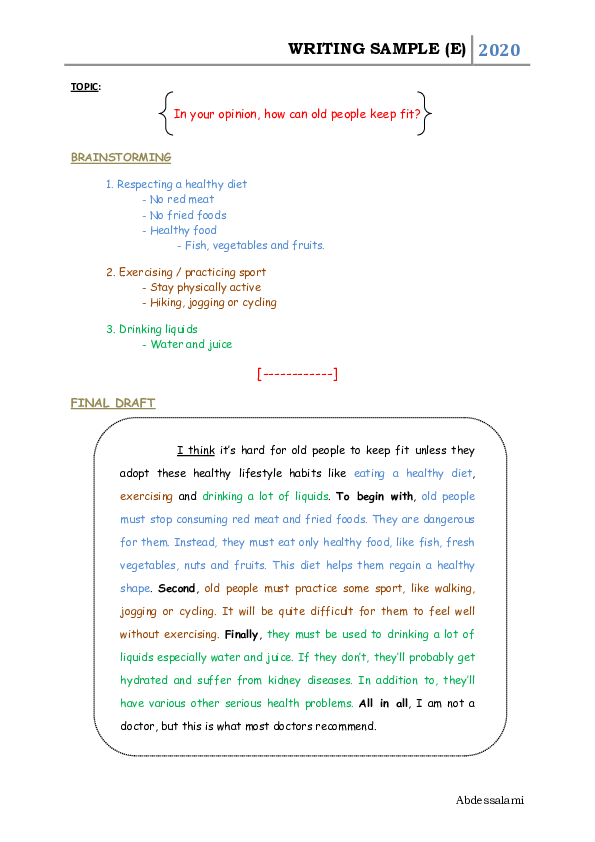 WRITING SAMPLE (E) 2020
TOPIC:
In your opinion, how can old people keep fit?
BRAINSTORMING
1. Respecting a healthy diet
- No red meat
- No fried foods
- Healthy food
- Fish, vegetables and fruits.
2. Exercising / practicing sport
- Stay physically active
- Hiking, jogging or cycling
3. Drinking liquids
- Water and juice
[------------]
FINAL DRAFT
I think it's hard for old people to keep fit unless they
adopt these healthy lifestyle habits like eating a healthy diet,
exercising and drinking a lot of liquids. To begin with, old people
must stop consuming red meat and fried foods. They are dangerous
for them. Instead, they must eat only healthy food, like fish, fresh
vegetables, nuts and fruits. This diet helps them regain a healthy
shape. Second, old people must practice some sport, like walking,
jogging or cycling. It will be quite difficult for them to feel well
without exercising. Finally, they must be used to drinking a lot of
liquids especially water and juice. If they don't, they'll probably get
hydrated and suffer from kidney diseases. In addition to, they'll
have various other serious health problems. All in all, I am not a
doctor, but this is what most doctors recommend.
Abdessalami